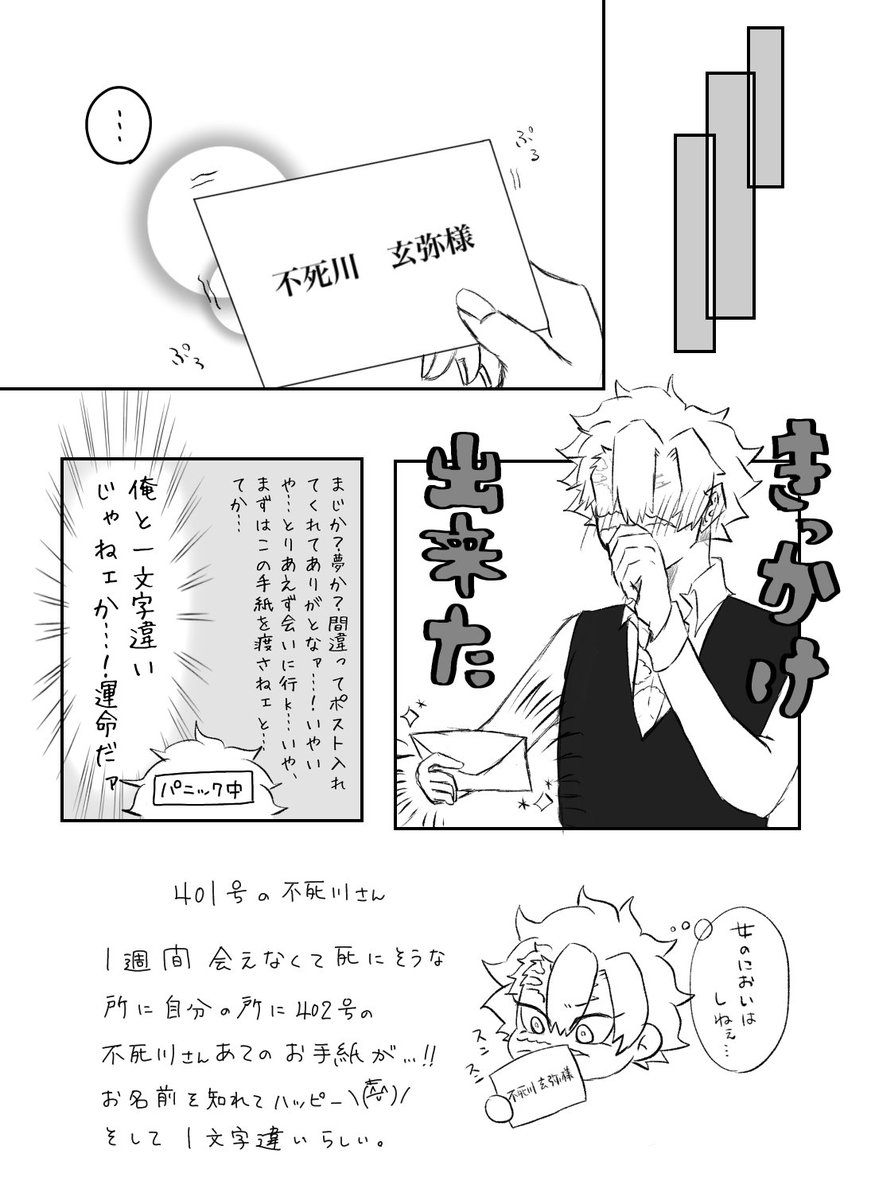 …
ぷる
不死川 玄弥様
ぷる
きっかけ
出来た
まじか?夢か?間違ってポスト入れ
てくれてありがとなァ…!いやい
や…とりあえず会いに行k…いや、
まずはこの手紙を渡さねェと…
てか…
俺と一文字違い
じゃねェか…!運命だァ
パニック中
401号の不死川さん
1週間会えなくて死にそうな
所に自分の所に402号の
不死川さんあてのお手紙が…!!
お名前を知れてハッピー
そして1文字違いらしい。
女のにおいは
しねぇ…
スン
スン
不死川 玄弥様